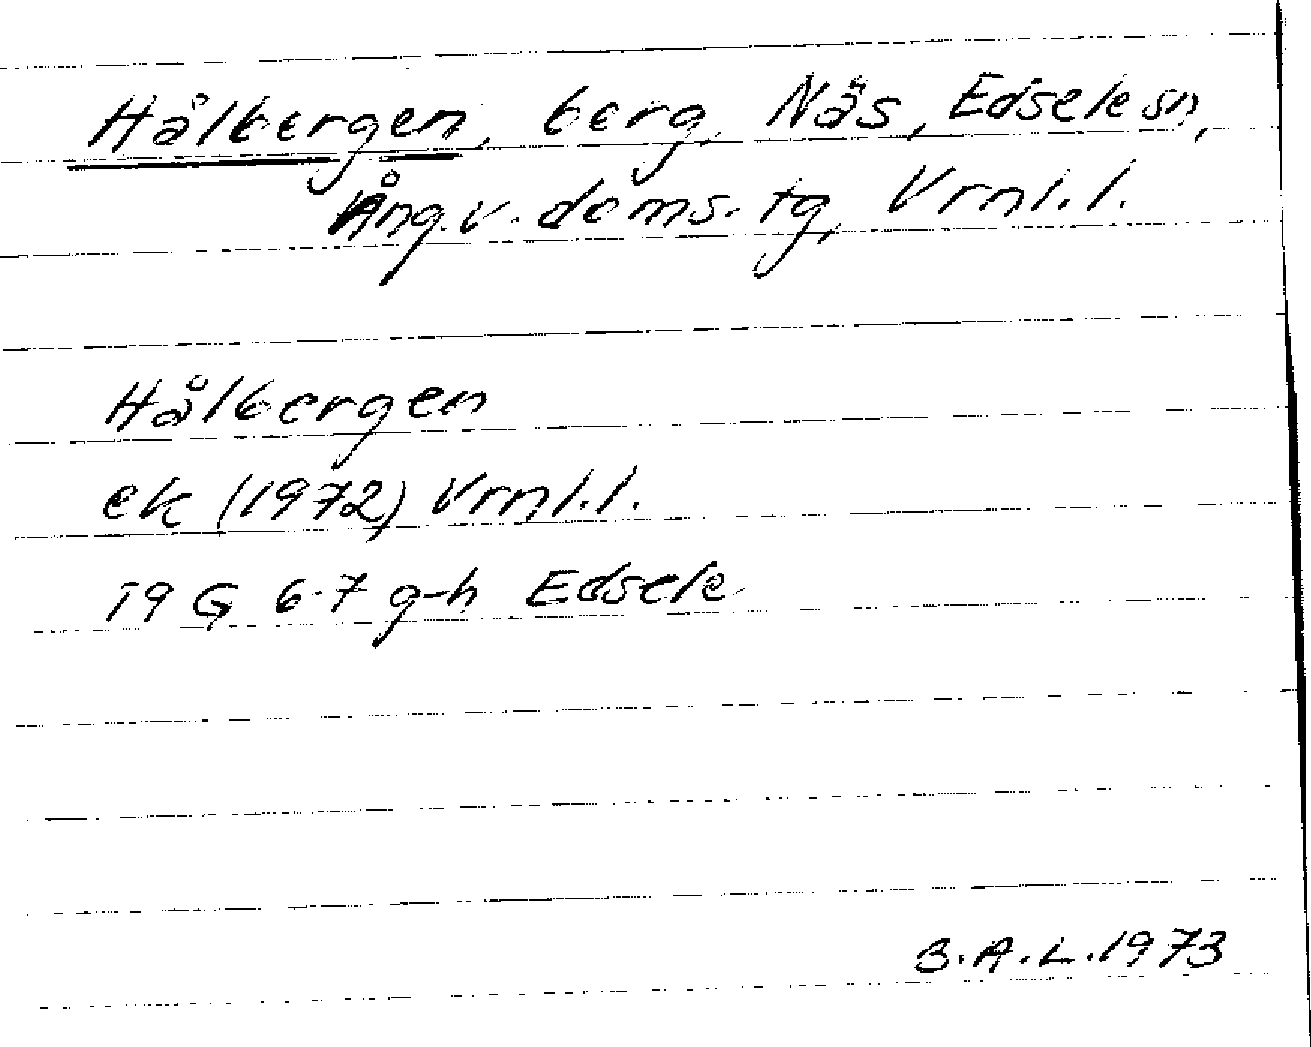 Hålbergen, berg, Näs, Edsele sn,
Ång.v. doms. tg, Vrnl.l.
Hålbergen
ek (1972) Vrnl.l.
19 G 6-7 g-h Edsele
B.A.L. 1973